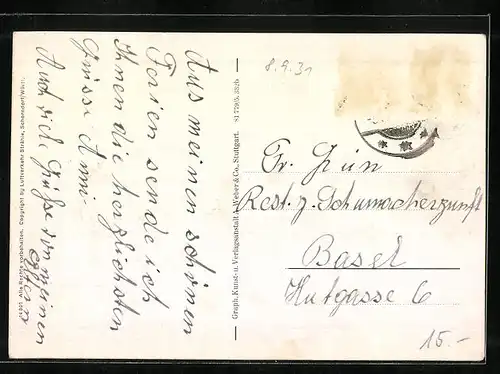 Aus meinen schönen
Ferien sende ich
Ihnen die herzlichsten
Grüsse Anni
Auch viele Grüße von meinen
Eltern
Alle Rechte vorbehalten. Copyright by Luftverkehr Strähle, Schorndorf/Württ.
Graph. Kunst- u. Verlagsanstalt A. Weber & Co., Stuttgart.
8.9.31
Fr.
Rest. z. Schumacherzunft
Basel
Hutgasse 6
15.-